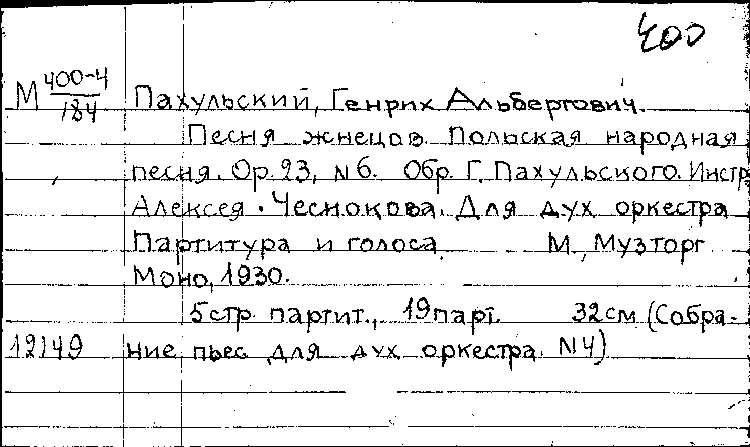 400
М 400-4/184 Пахульский, Генрих Альбертович.
Песня жнецов. Польская народная
песня. Ор. 23, №6. Обр. Г. Пахульского. Инстр
Алексея Чеснокова. Для дух оркестра
Партитура и голоса. М., Музторг
Моно, 1930.
5стр партит., 19парт. 32см (Собра-
12149 ние пьес для дух оркестра. №4)